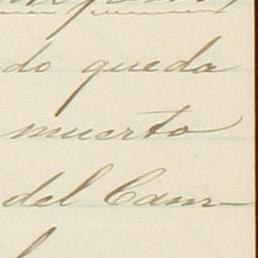 do queda
muerto
del Cam-